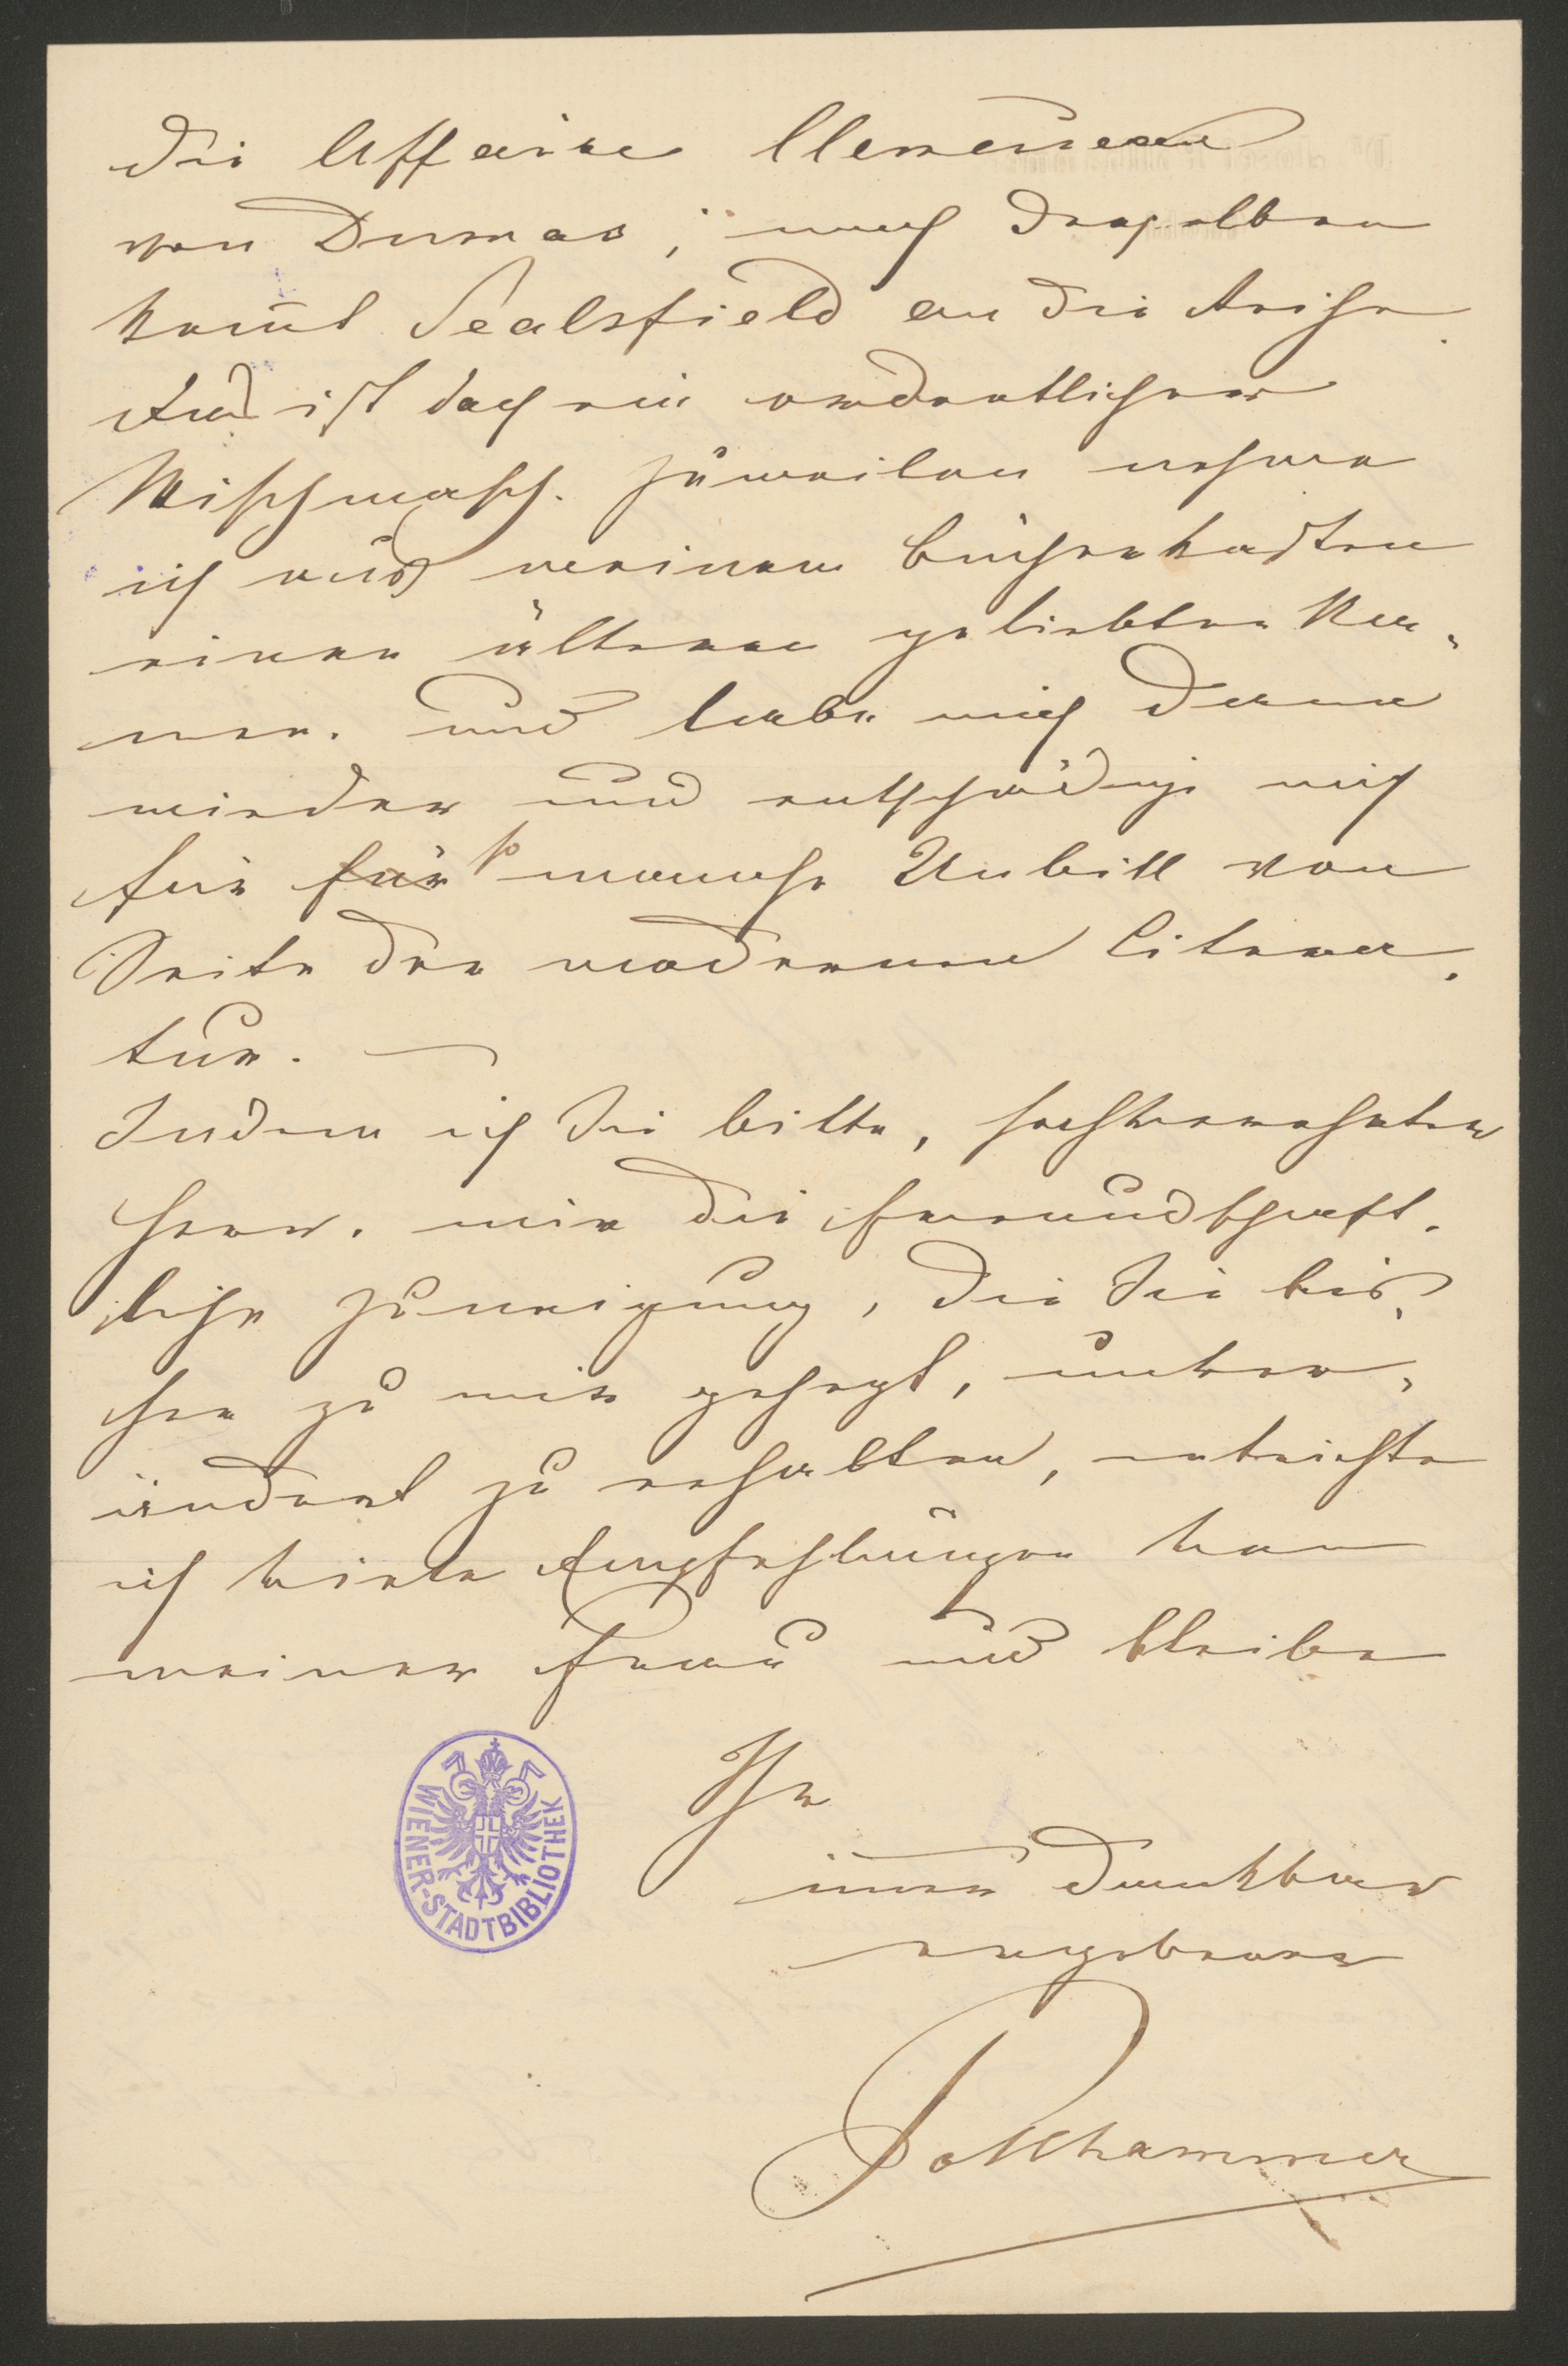 die Affaire Clemenceau
von Dumas; nach derselben
kom̅t Sealsfield an die Reihe.
Das ist doch ein ordentlicher
Mischmasch. Zuweilen nehme
ich aus meinem Bücherkasten
einen älteren geliebten
und labe mich daran
wieder und entschädige mich
für für so manche Unbill von
Seite der modernen Litera-
tur. —
Indem ich Sie bitte, hochverehrter
Herr, mir die freundschaft-
liche Zuneigung, die Sie bis-
her zu mir gehegt, unver-
ändert zu erhalten, entrichte
ich viele Empfehlungen von
meiner Frau und bleibe
Ihr
im̅er dankbar
ergebener
Pollhammer
WIENER-STADTBIBLIOTHEK